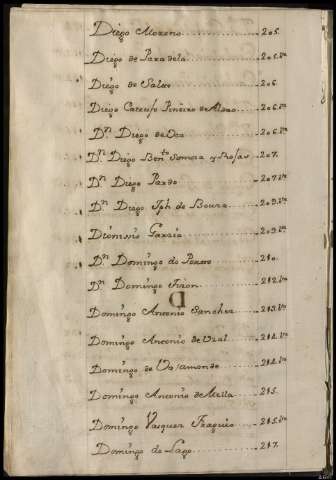 Diego Moreno 205.
Diego de Paradela 205.vta
Diego de Salas 206.
Diego Catrufo Piñeiro de Aldao 206.vta
Dn. Diego de Oca 206.vta
Dn. Diego Bento Somoza y Rosas 207.
Dn. Diego Pardo 207.vta
Dn. Diego Jph de Boura 209.vta
Dionissio Garzia 209.vta
Dn. Domingo do Porzo 210.
Dn. Domingo Tizon 212.vta
D
Domingo Antonio Sanchez 213.vta
Domingo Antonio de Ural 214.vta
Domingo de Vilamonde 214.vta
Domingo Antonio de Mella 215.
Domingo Vazquez 215.vta
Domingo de Lago 217.